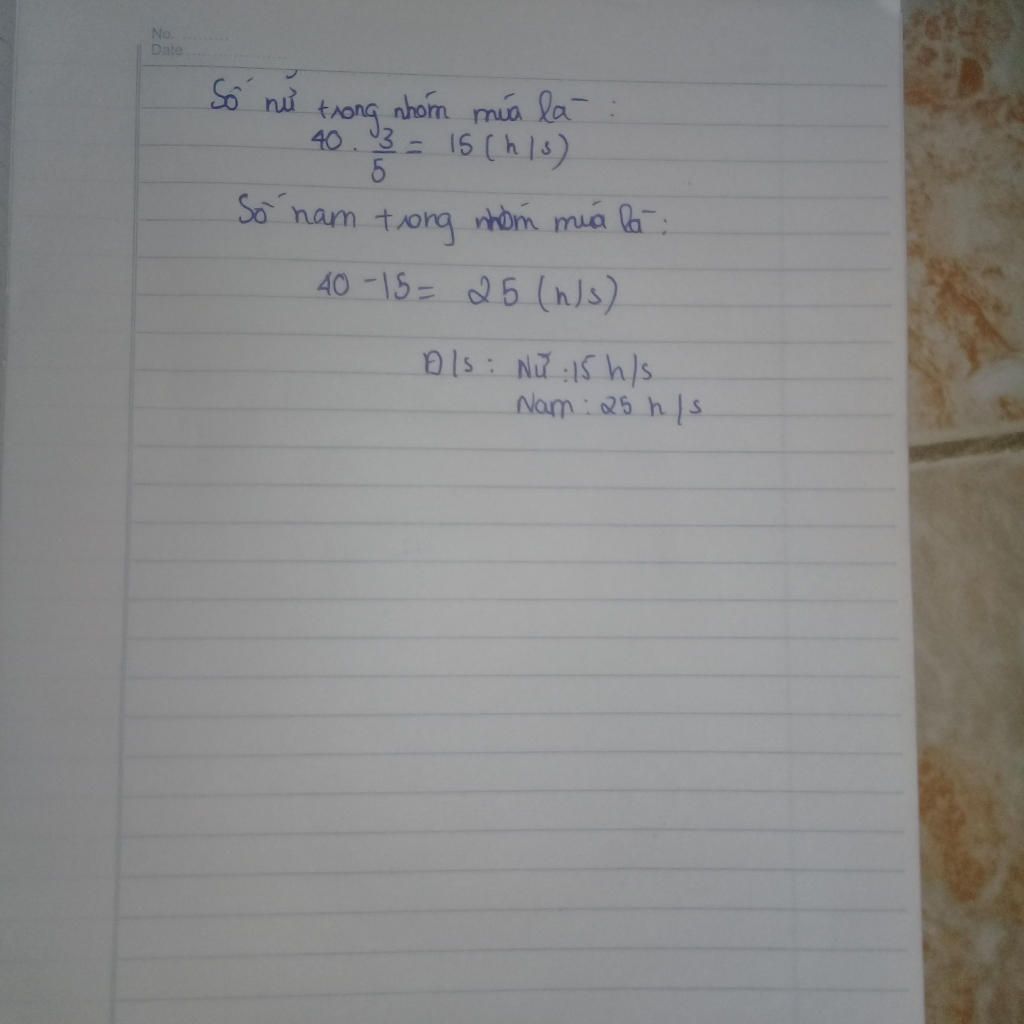 No. .........
Date ..................
Số nữ trong nhóm múa là :
40 . 3/5 = 15 ( h/s )
Số nam trong nhóm múa là :
40 - 15 = 25 (h/s)
Đ/s : Nữ : 15 h/s
Nam : 25 h/s